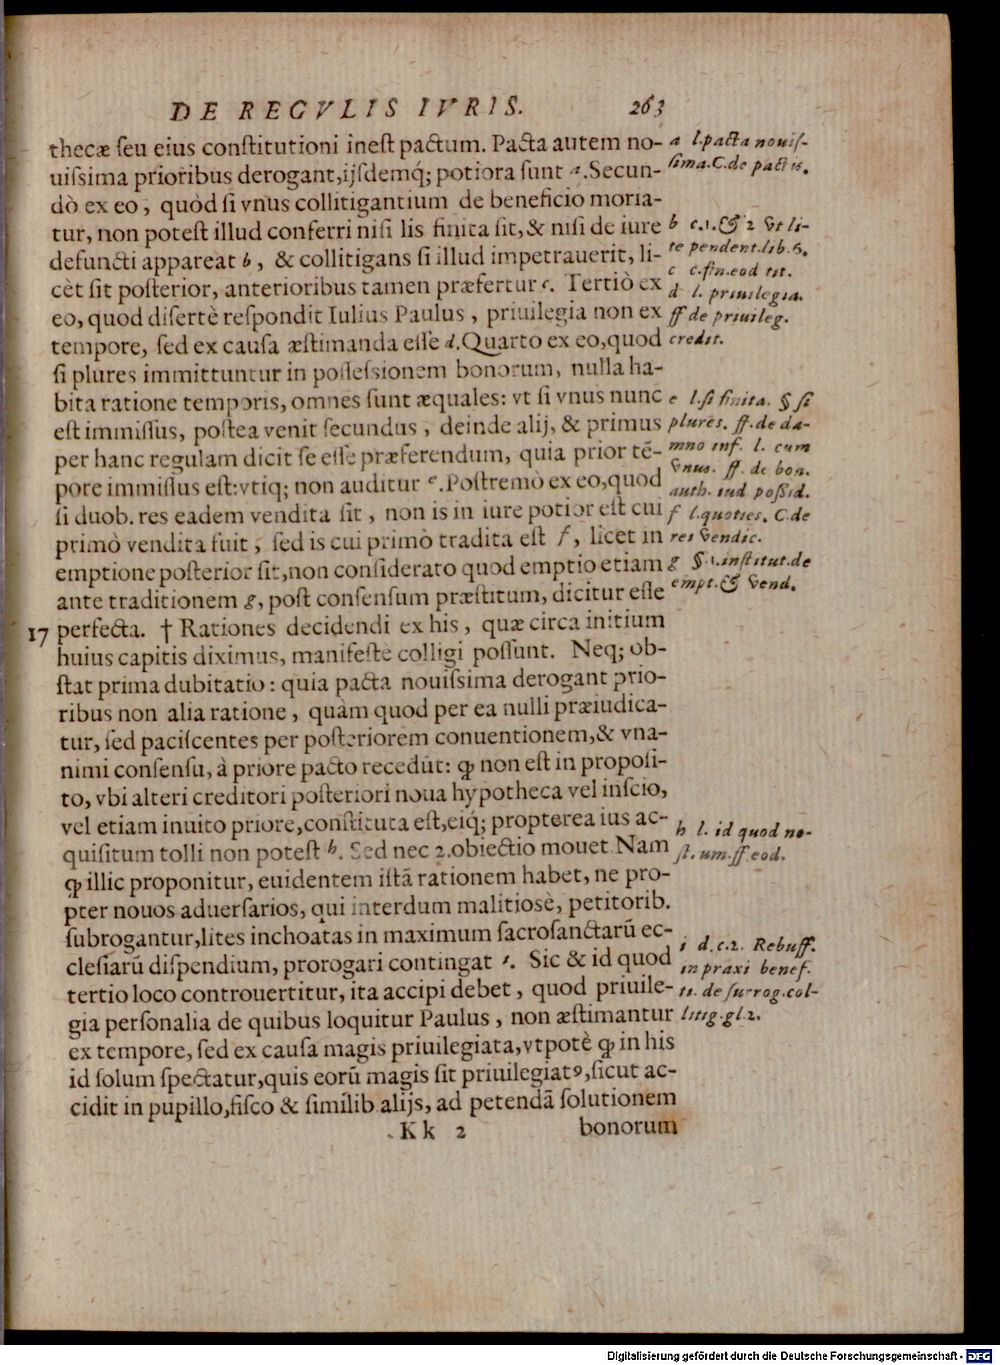 DE REGVLIS IVRIS. 263
thecæ ſeu eius conſtitutioni ineſt pactum. Pacta autem no-
uiſsima prioribus derogant,ijſdemq́; potiora ſunt a.Secun-
dò ex eo, quòd ſi vnus collitigantium de beneficio moria-
tur, non poteſt illud conferri niſi lis finita ſit,& niſi de iure
defuncti appareat b, & collitigans ſi illud impetrauerit, li-
cèt ſit poſterior, anterioribus tamen præfertur c. Tertiò ex
eo, quod diſertè reſpondit Iulius Paulus, priuilegia non ex
tempore, ſed ex cauſa æſtimanda eſſe d.Quarto ex eo,quod
ſi plures immittuntur in poſſeſsionem bonorum, nulla ha-
bita ratione temporis, omnes ſunt æquales: vt ſi vnus nunc
eſt immiſſus, poſtea venit ſecundus, deinde alij, & primus
per hanc regulam dicit ſe eſſe præferendum, quia prior tē-
pore immiſſus eſt:vtiq; non auditur e.Poſtremò ex eo,quod
ſi duob. res eadem vendita ſit, non is in iure potior eſt cui
primò vendita fuit, ſed is cui primò tradita eſt f, licet in
emptione poſterior ſit,non conſiderato quod emptio etiam
ante traditionem g, poſt conſenſum præſtitum, dicitur eſſe
17 perfecta. † Rationes decidendi ex his, quæ circa initium
huius capitis diximus, manifeſtè colligi poſſunt. Neq; ob-
ſtat prima dubitatio: quia pacta nouiſsima derogant prio-
ribus non alia ratione, quàm quod per ea nulli præiudica-
tur, ſed paciſcentes per poſteriorem conuentionem,& vna-
nimi conſenſu, à priore pacto recedūt: ꝙ non eſt in propoſi-
to, vbi alteri creditori poſteriori noua hypotheca vel inſcio,
vel etiam inuito priore,conſtituta eſt,eiq́; propterea ius ac-
quiſitum tolli non poteſt h. Sed nec 2.obiectio mouet Nam
ꝙ illic proponitur, euidentem iſtā rationem habet, ne pro-
pter nouos aduerſarios, qui interdum malitiosè, petitorib.
ſubrogantur,lites inchoatas in maximum ſacroſanctarū ec-
cleſiarū diſpendium, prorogari contingat i. Sic & id quod
tertio loco controuertitur, ita accipi debet, quod priuile-
gia perſonalia de quibus loquitur Paulus, non æſtimantur
ex tempore, ſed ex cauſa magis priuilegiata,vtpotè ꝙ in his
id ſolum ſpectatur,quis eorū magis ſit priuilegiatꝰ,ſicut ac-
cidit in pupillo,fiſco & ſimilib alijs, ad petendā ſolutionem
Kk 2 bonorum
a l.pacta nouiſ-
ſima.C.de pactis.
b c.1.& 2 vt li-
te pendent.lib.6.
c c.fin.eod tit.
d l. priuilegia.
ff de priuileg.
credit.
e l.ſi finita. § ſi
plures. ff. de da-
mno inf. l. cum
vnus. ff. de bon.
auth. iud poßid.
f l.quoties. C.de
rei vendic.
g §.1.inſtitut.de
empt.& vend.
h l. id quod no-
ſt.um.ff eod.
i d.c.2. Rebuff.
in praxi benef.
ti. de ſurrog.col-
litig.gl.2.
Digitalisierung gefördert durch die Deutsche Forschungsgemeinschaft - DFG